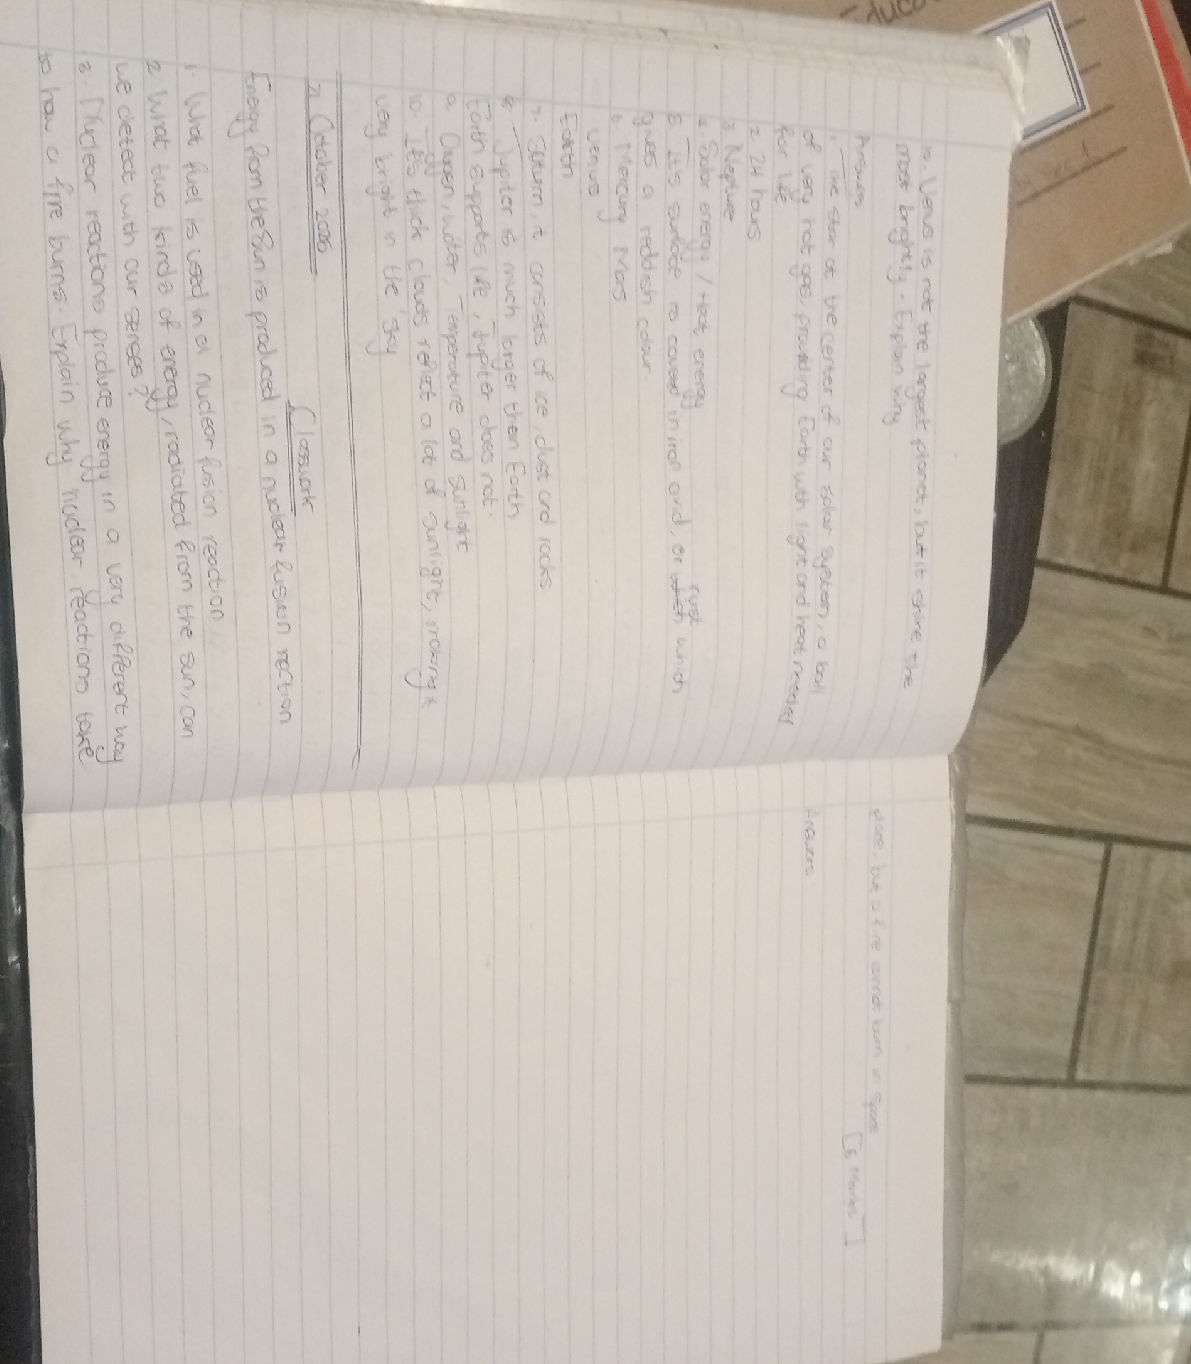 Educa
10. Venus is not the largest planet, but it shine the
most brightly. Explain why
Answers
1. The star at the center of our solar system, a ball
of very hot gas, providing Earth with light and heat needed
for life
2. 24 hours
3. Neptune
4. Solar energy / Heat energy
5. It's surface is covered in iron oxid, or rust which
gives a reddish colour
6. Mercury Mars
Venus
Earth
7. Saturn, it consists of ice, dust and rocks
8. Jupiter is much larger then Earth
Earth supports life, Jupiter does not
9. Oxygen, water, Temperature and sunlight
10. Its thick clouds reflect a lot of sunlight, making it
very bright in the sky
Classwork
21 October
Energy from the Sun is produced in a nuclear fusion rection
1. What fuel is used in a nuclear fusion reaction
2. What two kinds of energy, radiated from the sun, can
we detect with our senses?
3. Nuclear reactions produce energy in a very different way
to how a fire burns. Explain why nuclear reactions take
place, but a fire cannot burn in space
[6 Marks]
Answers